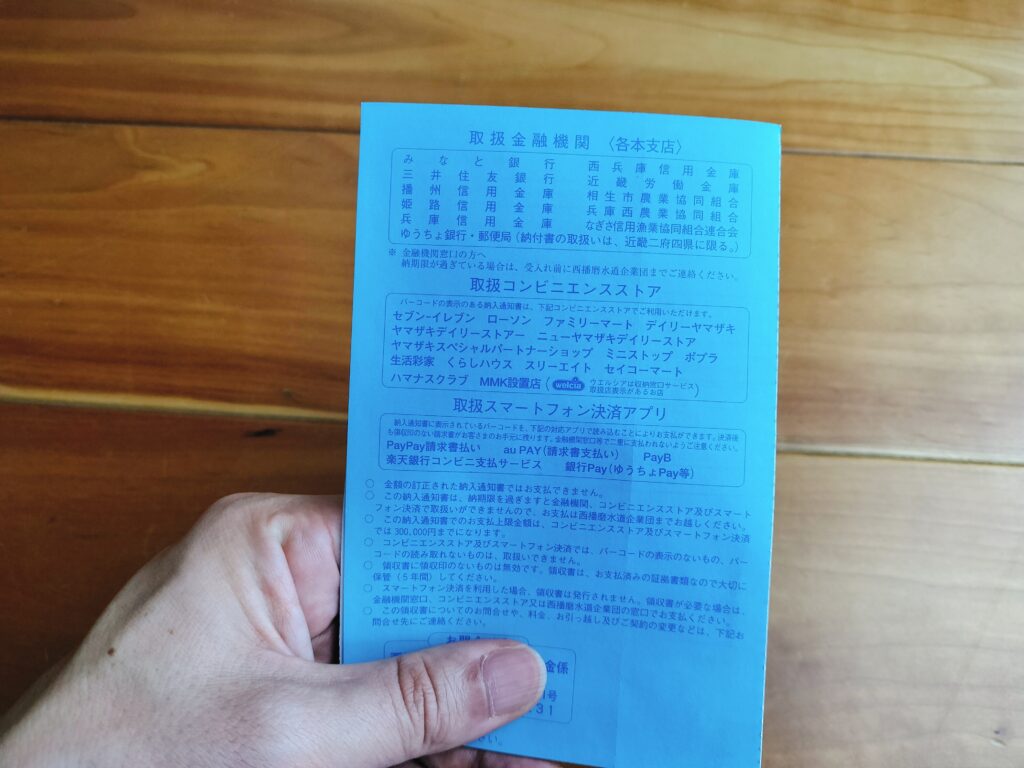 取扱金融機関 〈各本支店〉
みなと銀行 西兵庫信用金庫
三井住友銀行 近畿労働金庫
播州信用金庫 相生市農業協同組合
姫路信用金庫 兵庫西農業協同組合
兵庫信用金庫 なぎさ信用漁業協同組合連合会
ゆうちょ銀行・郵便局(納付書の取扱いは、近畿二府四県に限る。)
※ 金融機関窓口の方へ
納期限が過ぎている場合は、受入れ前に西播磨水道企業団までご連絡ください。
取扱コンビニエンスストア
バーコードの表示のある納入通知書は、下記コンビニエンスストアでご利用いただけます。
セブン-イレブン ローソン ファミリーマート デイリーヤマザキ
ヤマザキデイリーストアー ニューヤマザキデイリーストア
ヤマザキスペシャルパートナーショップ ミニストップ ポプラ
生活彩家 くらしハウス スリーエイト セイコーマート
ハマナスクラブ MMK設置店 ( welcia ウエルシアは収納窓口サービス
取扱店表示があるお店 )
取扱スマートフォン決済アプリ
納入通知書に表示されているバーコードを、下記の対応アプリで読み込むことによりお支払ができます。決済後
も領収印のない請求書がお客さまのお手元に残ります。金融機関窓口等で二重に支払われないようご注意ください。
PayPay請求書払い au PAY(請求書支払い) PayB
楽天銀行コンビニ支払サービス 銀行Pay(ゆうちょPay等)
○ 金額の訂正された納入通知書ではお支払できません。
○ この納入通知書は、納期限を過ぎますと金融機関、コンビニエンスストア及びスマート
フォン決済で取扱いができませんので、お支払は西播磨水道企業団までお越しください。
○ この納入通知書でのお支払上限金額は、コンビニエンスストア及びスマートフォン決済
では300,000円までになります。
○ コンビニエンスストア及びスマートフォン決済では、バーコードの表示のないもの、バー
コードの読み取れないものは、取扱いできません。
○ 領収書に領収印のないものは無効です。領収書は、お支払済みの証拠書類なので大切に
保管(5年間)してください。
○ スマートフォン決済を利用した場合、領収書は発行されません。領収書が必要な場合は、
金融機関窓口、コンビニエンスストア又は西播磨水道企業団の窓口でお支払ください。
○ この領収書についてのお問合せや、料金、お引っ越し及びご契約の変更などは、下記お
問合せ先にご連絡ください。
お問
金係
号
31
さい。